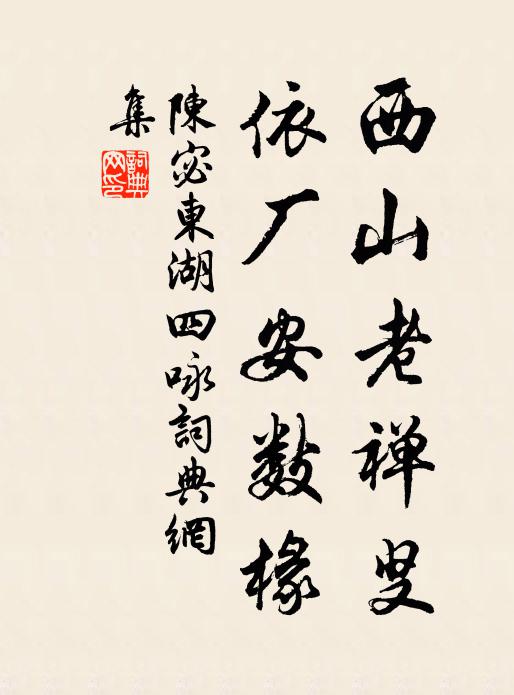 西山老禅叟
依厂安数椽
陳宓東湖四咏詞典網
集
詞典網印